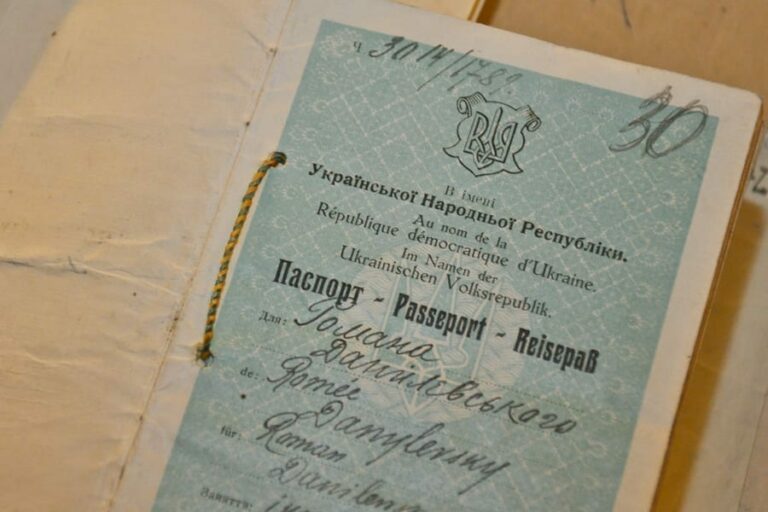 Ч 3014/1789.
30
В імені
Української Народньої Республіки.
Au nom de la
République démocratique d'Ukraine.
Im Namen der
Ukrainischen Volksrepublik.
Паспорт - Passeport - Reisepaß
Для: Романа
Данілєвського
de: Romée
Danylevsky
für: Roman
Заняття: